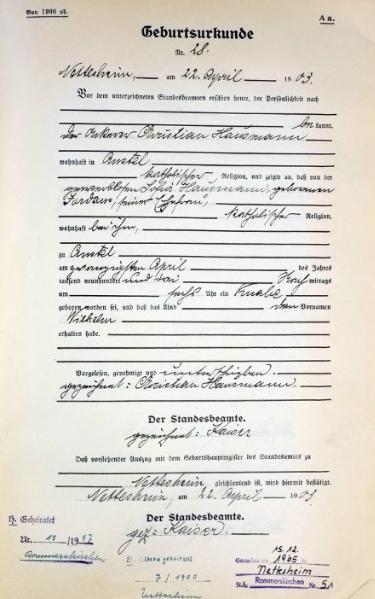 Von 1900 ab.
A a.
Geburtsurkunde
Nr. 28.
Nettesheim, am 22. April 1903.
Vor dem unterzeichneten Standesbeamten erschien heute, der Persönlichkeit nach
be kannt,
der Ackerer Christian Hausmann
wohnhaft in Anstel
katholischer Religion, und zeigte an, daß von der
gewerblosen Sofia Hausmann, geborenen
Jordans, seiner Ehefrau,
katholischer Religion,
wohnhaft bei ihm,
zu Anstel
am zwanzigsten April des Jahres
tausend neunhundert und drei mittags
um sechs Uhr ein Knabe
geboren worden sei, und daß das Kind den Vornamen
Wilhelm
erhalten habe.
Vorgelesen, genehmigt und unterschrieben
gezeichnet: Christian Hausmann.
Der Standesbeamte.
gezeichnet: Kaiser
Daß vorstehender Auszug mit dem Geburtshauptregister des Standesamtes zu
Nettesheim gleichlautend ist, wird hiermit bestätigt.
Nettesheim, am 22. April 1903.
Der Standesbeamte.
gez: Kaiser.
Geheiratet
Nr. 10 19
Rommerskirchen
7 / 1900
Nettesheim
15.12.
1965 in
Nettesheim
St.A. Rommerskirchen Nr. 51